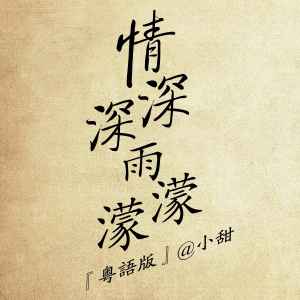 情深深雨濛濛
『粵語版』@小甜